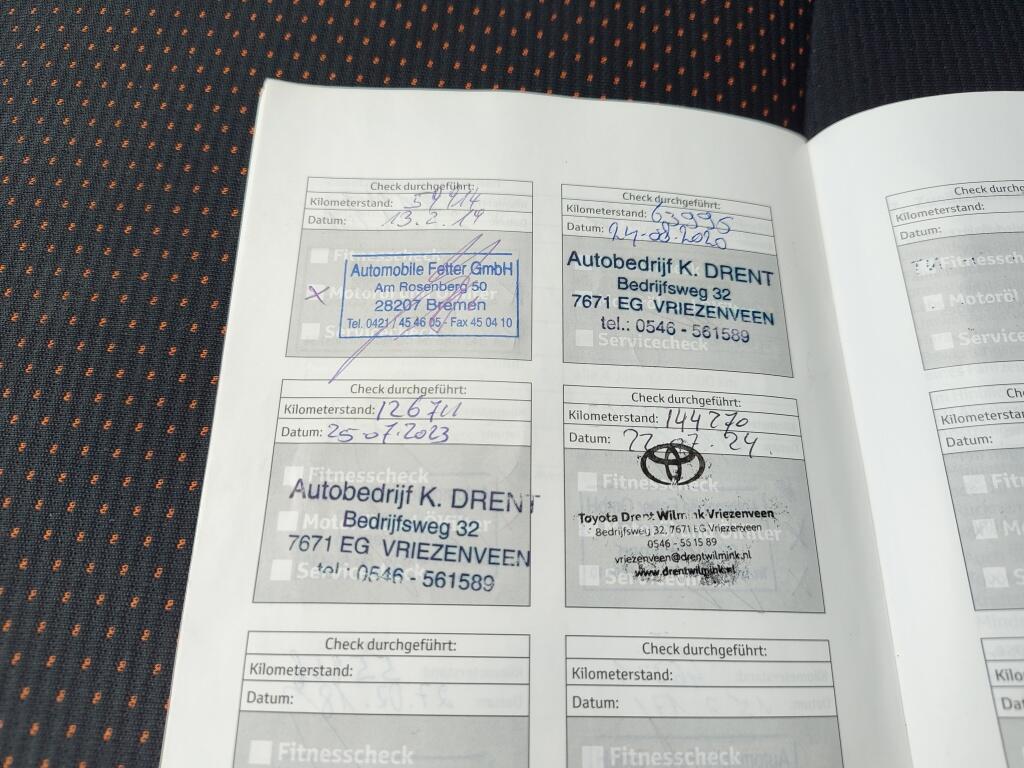 Check durchgeführt:
Kilometerstand: 54414
Datum: 13.2.19
Fitnesscheck
Automobile Fetter GmbH
Am Rosenberg 50
28207 Bremen
Tel. 0421 / 45 46 05 - Fax 45 04 10
Check durchgeführt:
Kilometerstand: 63995
Datum: 24-08-2020
Autobedrijf K. DRENT
Bedrijfsweg 32
7671 EG VRIEZENVEEN
tel.: 0546 - 561589
Servicecheck
Check durchgeführt:
Kilometerstand: 126711
Datum: 25-07-2023
Fitnesscheck
Autobedrijf K. DRENT
Bedrijfsweg 32
7671 EG VRIEZENVEEN
tel.: 0546 - 561589
Servicecheck
Check durchgeführt:
Kilometerstand: 144270
Datum: 22-07-24.
Fitnesscheck
Toyota Drent Wilmink Vriezenveen
Bedrijfsweg 32, 7671 EG Vriezenveen
0546 - 56 15 89
vriezenveen@drentwilmink.nl
www.drentwilmink.nl
Servicecheck
Check durchgeführt:
Kilometerstand:
Datum:
Fitnesscheck
Check durchgeführt:
Kilometerstand:
Datum:
Fitnesscheck
Check durchg
Kilometerstand:
Datum:
Fitnessch
Motoröl
Servicec
Check
Kilometerstand:
Datum:
Fitne
Moto
Serv
Kilo
Da